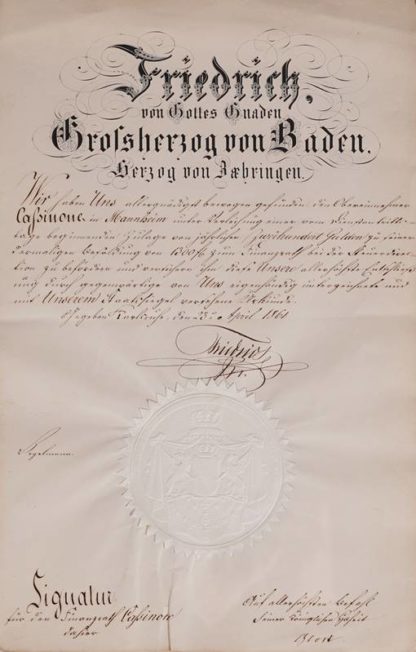 Friedrich,
von Gottes Gnaden
Grossherzog von Baden.
Herzog von Zæhringen.
Wir haben Uns allergnädigst bewogen gefunden, den Obereinnehmer
Caßinone in Mannheim unter Verleihung einer vom
tage beginnenden Zulage von jährlichen Zweihundert Gulden zu seiner
dermaligen Besoldung von 1300 f. zum Finanzrath bei der Steuerdirek-
tion zu befördern und versichern ihn dieser Unserer allerhöchsten Entschließ-
ung durch gegenwärtige von Uns eigenhändig unterzeichnete und
mit Unserem Staatssiegel versehene Urkunde.
Gegeben Karlsruhe, den April 1861
Friedrich
Signatur
für den Finanzrath Caßinone
dahier
Auf allerhöchsten Befehl
Seiner Königlichen Hoheit